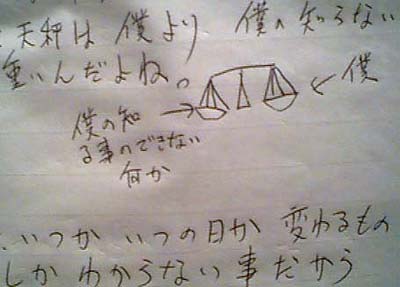 天秤は 僕より 僕の知らない
重いんだよね。
僕
僕の知
る事のできない
何か
いつか いつの日か 変わるもの
しか わからない 事だから